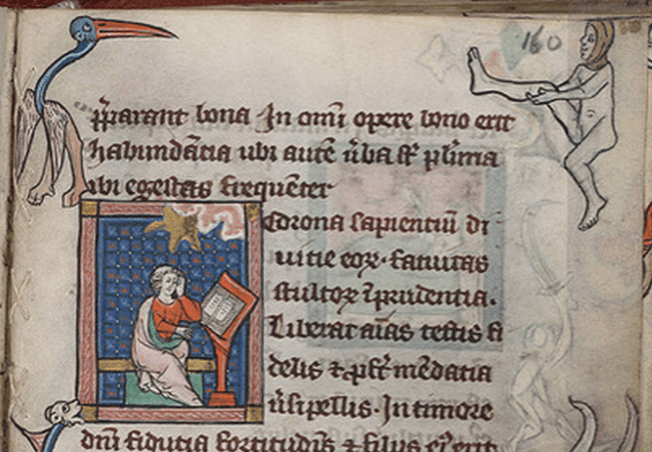 160
p̄parant bona In om̄i opere bono erit
habundātia ubi autē ūba st̄ pl̄ima
ibi egestas frequēter
Corona sapientiū di
uitie eoꝝ· fatuitas
stultoꝝ īprudentia·
Liberat aīas testis fi
delis ⁊ ꝓfert mēdatia
ūsipellis· In timore
dn̄i fiducia fortitudīs ⁊ filiis eiꝰ erit